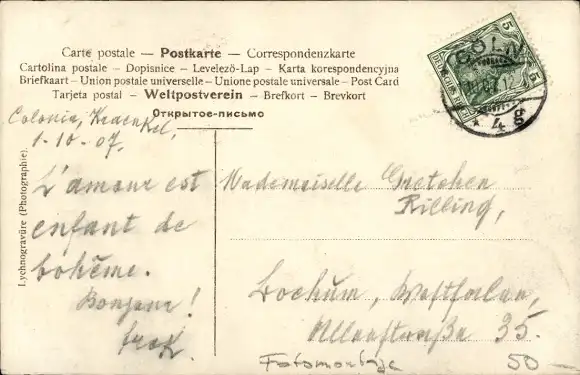 Carte postale — Postkarte — Correspondenzkarte
Cartolina postale – Dopisnice – Levelező-Lap – Karta korespondencyjna
Briefkaart – Union postale universelle – Unione postale universale – Post Card
Tarjeta postal – Weltpostverein – Brefkort – Brevkort
Открытое-письмо
CÖLN
4 g
5
Colonia,
1-10-07.
L'amour est
enfant de
bohême.
Bonjour!
Mademoiselle Gretchen
Rilling,
Bochum, Westfalen,
Alleestraße 35.
Lychnogravüre (Photographie).
Fotomontage
50-